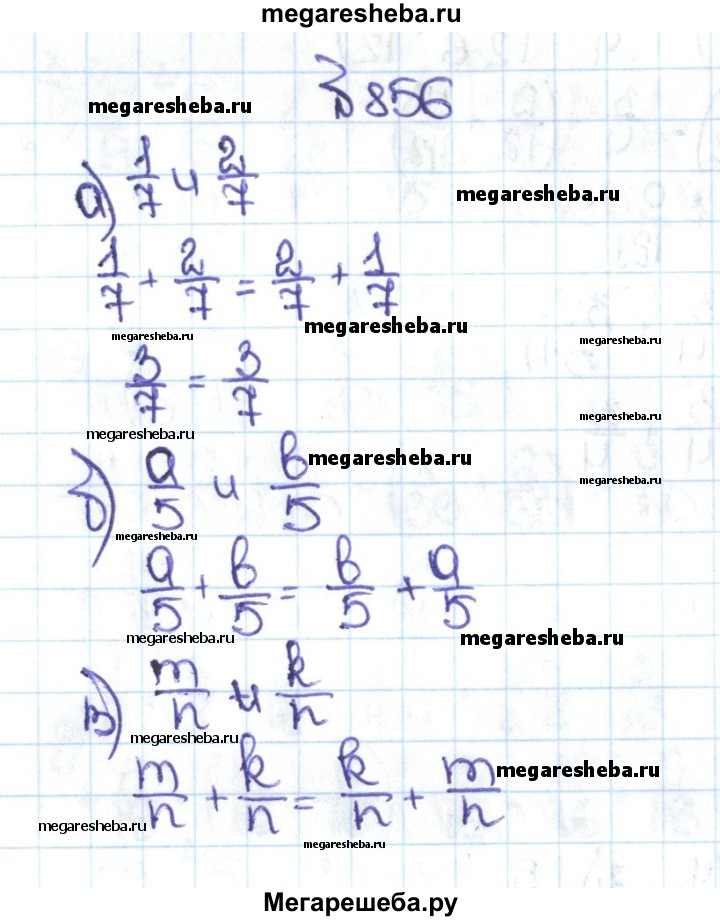 megaresheba.ru
№ 856
megaresheba.ru
а) 1/7 и 2/7
megaresheba.ru
1/7 + 2/7 = 2/7 + 1/7
megaresheba.ru
megaresheba.ru
megaresheba.ru
3/7 = 3/7
megaresheba.ru
megaresheba.ru
б) a/5 и b/5
megaresheba.ru
megaresheba.ru
megaresheba.ru
a/5 + b/5 = b/5 + a/5
megaresheba.ru
megaresheba.ru
в) m/n и k/n
megaresheba.ru
m/n + k/n = k/n + m/n
megaresheba.ru
megaresheba.ru
megaresheba.ru
Мегарешеба.ру